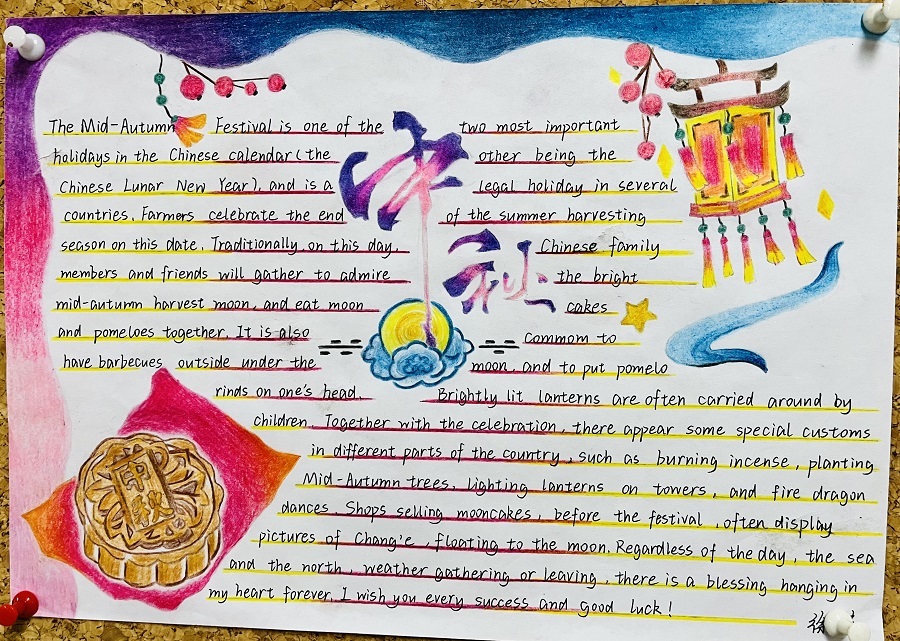 中秋
The Mid-Autumn Festival is one of the two most important
holidays in the Chinese calendar (the other being the
Chinese Lunar New Year), and is a legal holiday in several
countries. Farmers celebrate the end of the summer harvesting
season on this date. Traditionally, on this day, Chinese family
members and friends will gather to admire the bright
mid-autumn harvest moon, and eat moon cakes
and pomeloes together. It is also commom to
have barbecues outside under the moon, and to put pomelo
rinds on one's head. Brightly lit lanterns are often carried around by
children. Together with the celebration, there appear some special customs
in different parts of the country, such as burning incense, planting
Mid-Autumn trees, lighting lanterns on towers, and fire dragon
dances. Shops selling mooncakes, before the festival, often display
pictures of Chang'e, floating to the moon. Regardless of the day, the sea
and the north, weather gathering or leaving, there is a blessing hanging in
my heart forever. I wish you every success and good luck!
中秋
徐